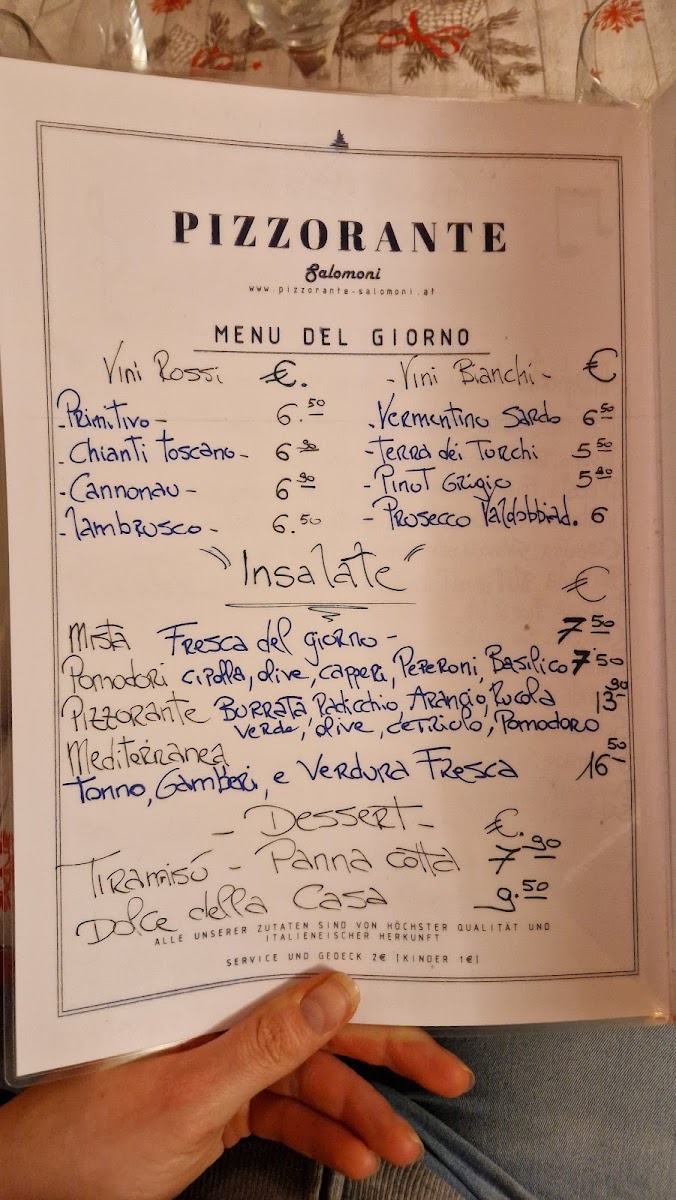 PIZZORANTE
Salomoni
www.pizzorante-salomoni.at
MENU DEL GIORNO
Vini Rossi €. - Vini Bianchi - €
- Primitivo - 6.50 - Vermentino Sardo 6 50
- Chianti Toscano - 6 90 - Terra dei Torchi 5 50
- Cannonau - 6 90 - Pinot Grigio 5 90
- Lambrusco - 6.50 - Prosecco Valdobbiad. 6
"Insalate" €
Mista Fresca del giorno - 7 50
Pomodori cipolla, olive, capperi, Peperoni, Basilico 7 50
Pizzorante Burrata, Radicchio, Arancio, Rucola 13 90
verde, olive, cetriolo, Pomodoro
Mediterranea
Tonno, Gamberi, e Verdura Fresca 16 50
- Dessert - €.
Tiramisú - Panna cotta 7 90
Dolce della Casa 9.50
ALLE UNSERER ZUTATEN SIND VON HÖCHSTER QUALITÄT UND
ITALIENEISCHER HERKUNFT
SERVICE UND GEDECK 2€ (KINDER 1€)